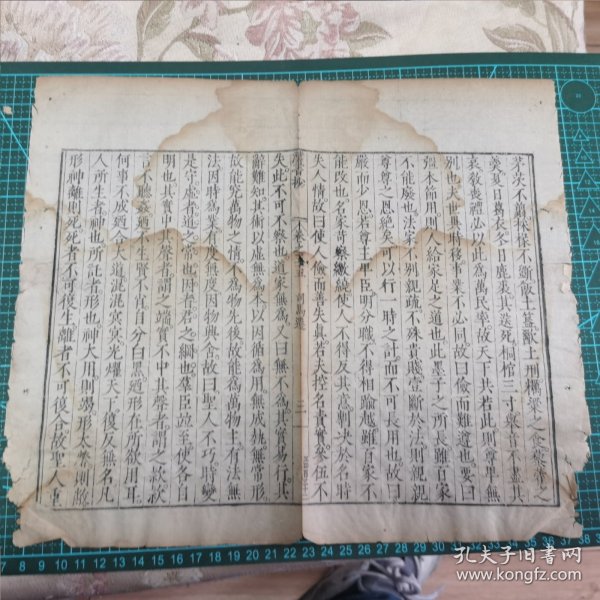 茅茨不翦採椽不斲飯土簋歠土刑糲粱之食藜藿之
羹夏日葛衣冬日鹿裘其送死桐棺三寸舉音不盡其
哀敎喪禮必以此為萬民率故天下共若此則尊卑無
別也夫世異時移事業不必同故曰儉而難遵也要曰
彊本節用則人給家足之道也此墨子之所長雖百家
不能廢也法家不別親疏不殊貴賤壹斷於法則親親
尊尊之恩絶矣可以行一時之計而不可長用也故曰
嚴而少恩若尊主卑臣明分職不得相踰越雖百家不
能改也名家苛察繳繞使人不得反其意剸決於名時
失人情故曰使人儉而善失眞若夫控名責實參伍不
漢書抄 司馬遷 三
失此不可不察也道家無為又曰無不為其實易行其
辭難知其術以虛無為本以因循為用無成埶無常形
故能究萬物之情不為物先後故能為萬物主有法無
法因時為業有度無度因物興舍故曰聖人不巧時變
是守虛者道之常也因者君之綱也羣臣竝至使各自
明也其實中其聲者謂之端實不中其聲者謂之款款
言不聽姦廼不生賢不肖自分白黑廼形在所欲用耳
何事不成廼合大道混混冥冥光燿天下復反無名凡
人所生者神也所託者形也神大用則竭形大勞則敝
形神離則死死者不可復生離者不可復合故聖人重
孔夫子旧书网
www.kongfz.com